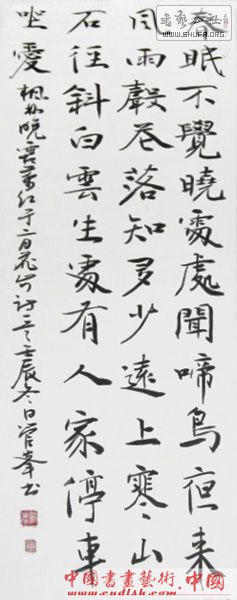 春眠不覺曉處處聞啼鳥夜来
風雨聲花落知多少遠上寒山
石徑斜白雲生處有人家停車
坐愛楓林晚霜葉紅于二月花 壬辰冬日管峯书
WWW.SHUFA.ORG
中國書畫藝術.中国